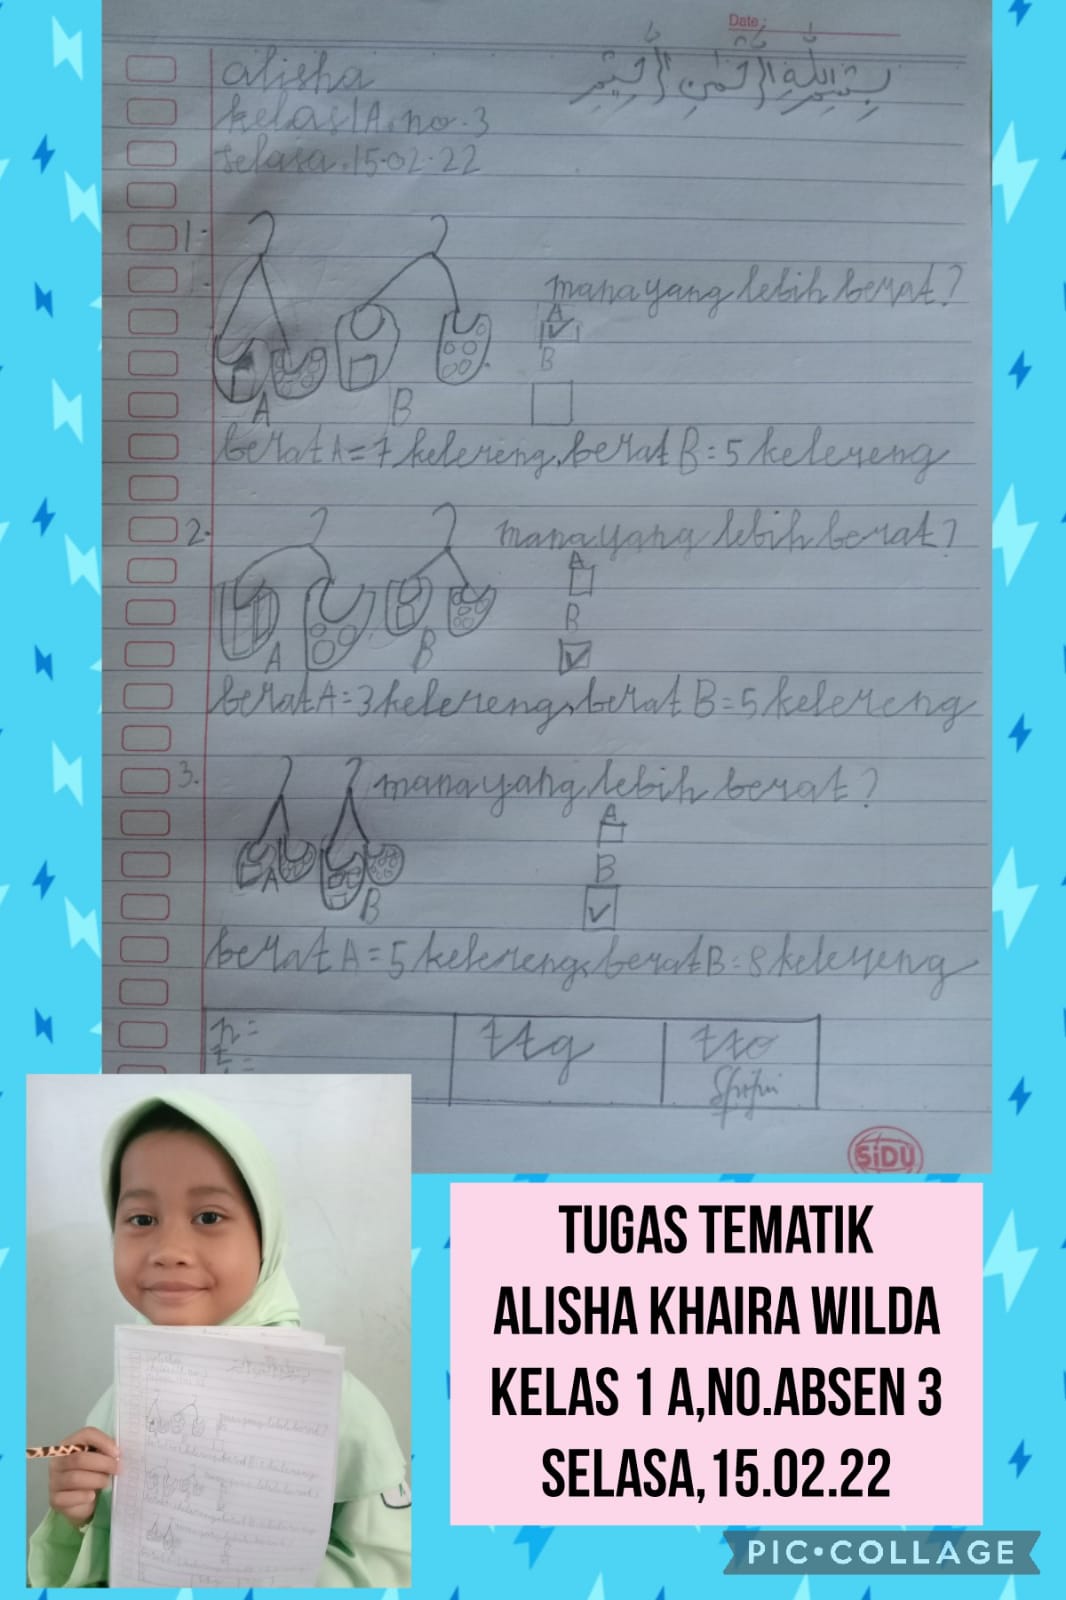 Date :
بِسْمِ اللهِ الرَّحْمٰنِ الرَّحِيْمِ
alisha
kelas 1A. no. 3
selasa. 15-02-22
1.
mana yang lebih berat?
A
B
A B
berat A = 7 kelereng, berat B = 5 kelereng
2.
mana yang lebih berat?
A
B
A B
berat A = 3 kelereng, berat B = 5 kelereng
3.
mana yang lebih berat?
A
B
A B
berat A = 5 kelereng, berat B = 8 kelereng
n = ttg tto
t =
SiDU
TUGAS TEMATIK
ALISHA KHAIRA WILDA
KELAS 1 A,NO.ABSEN 3
SELASA,15.02.22
PIC•COLLAGE